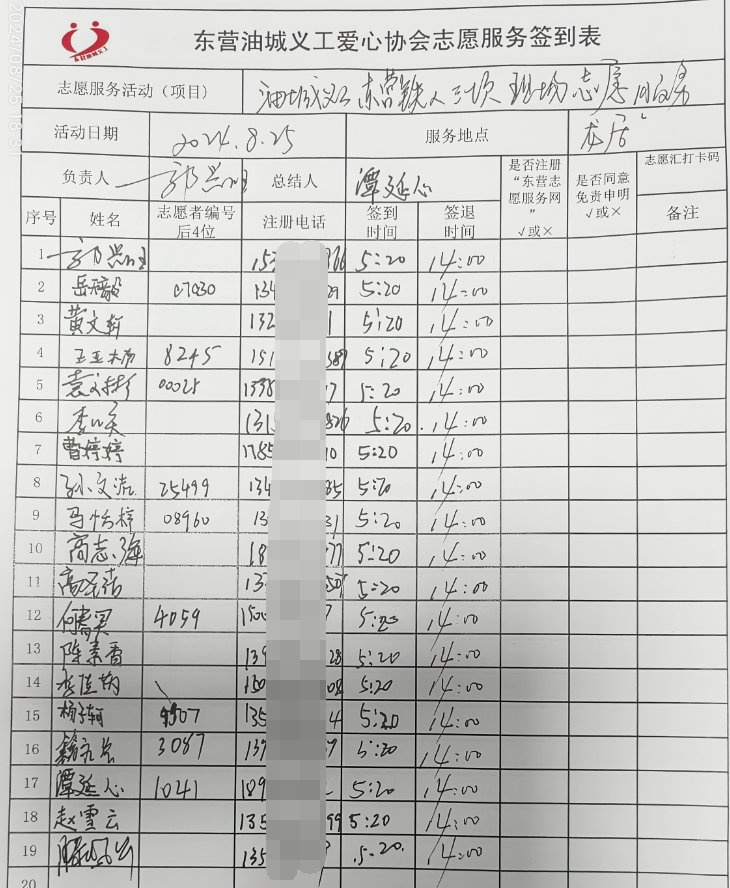 东营油城义工
东营油城义工爱心协会志愿服务签到表
志愿服务活动（项目） 油城义工东营铁人三项现场志愿服务
活动日期 2024.8.25 服务地点 龙居
负责人 总结人 谭延心 是否注册“东营志愿服务网” √或× 是否同意免责申明 √或× 志愿汇打卡码
序号 姓名 志愿者编号后4位 注册电话 签到时间 签退时间 备注
1 5:20 14:00
2 07030 134 5:20 14:00
3 黄文轩 132 1 5:20 14:00
4 8245 151 5:20 14:00
5 00025 1338 7 5:20 14:00
6 131 5:20 14:00
7 曹婷婷 1785 10 5:20 14:00
8 孙文流 25499 134 85 5:20 14:00
9 马怡梓 08960 13 31 5:20 14:00
10 商志海 18 77 5:20 14:00
11 13 5:20 14:00
12 4059 1500 7 5:20 14:00
13 陈素香 139 28 5:20 14:00
14 150 08 5:20 14:00
15 9907 135 4 5:20 14:00
16 3087 139 5:20 14:00
17 谭延心 1041 5:20 14:00
18 赵雪云 135 99 5:20 14:00
19 135 5:20 14:00
20